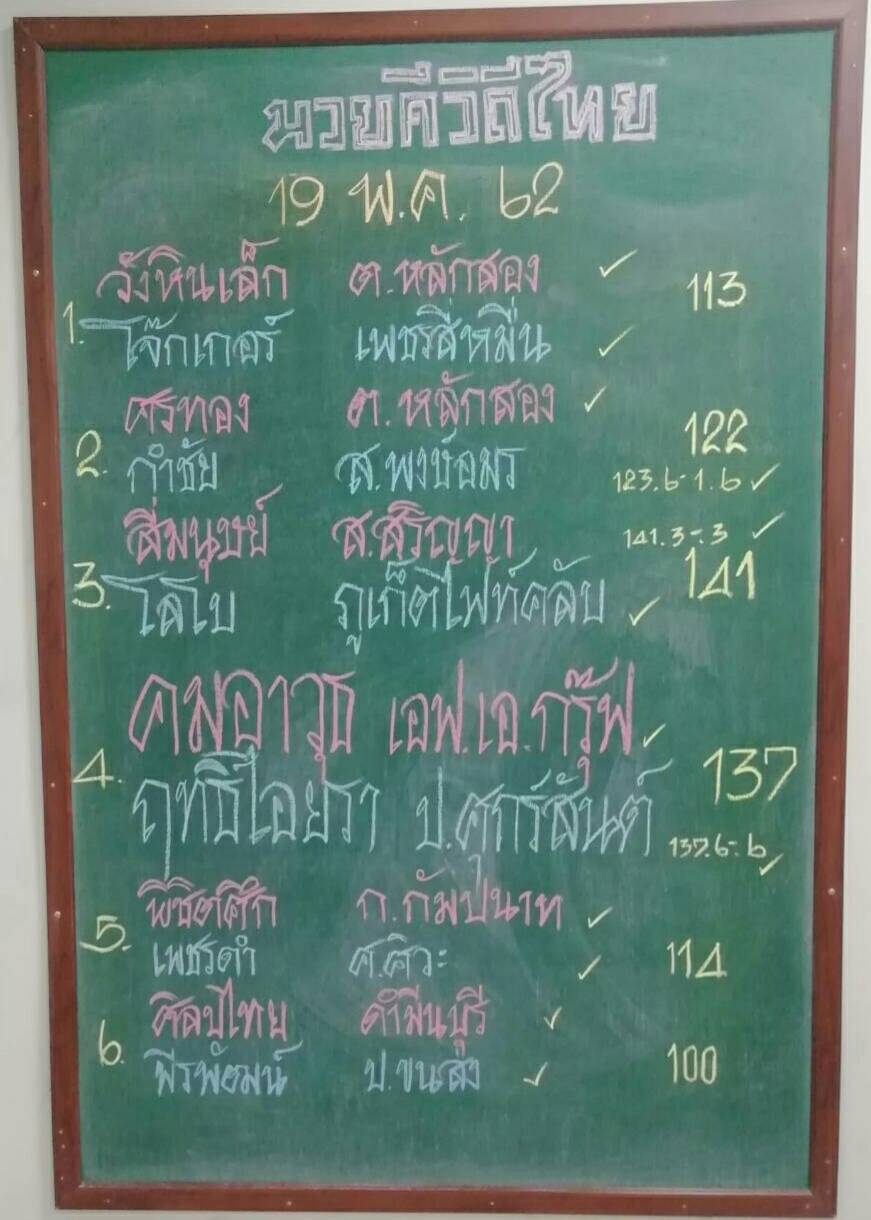 มวยดีวิถีไทย
19 พ.ค. 62
1. วังหินเล็ก ต.หลักสอง ✓ 113
โจ๊กเกอร์ เพชรสี่หมื่น ✓
2. ศรทอง ต.หลักสอง ✓ 122
กำชัย ส.พงษ์อมร 123.6-1.6 ✓
3. สี่มนุษย์ ส.สริญญา 141.3-.3 ✓
โลโบ ภูเก็ตไฟท์คลับ ✓ 141
4. คมอาวุธ เอฟ.เอ.กรุ๊ฟ ✓ 137
ฤทธิ์ไอยรา ป.ศุกร์สันต์ 137.6-.6 ✓
5. พิชิตศึก ก.กัมปนาท ✓ 114
เพชรดำ ศ.ศิวะ ✓
6. ศิลป์ไทย ดำมีนบุรี ✓ 100
ป.ขนส่ง ✓